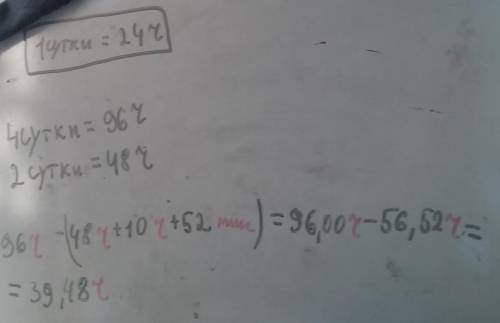 1 сутки = 24 ч
4 сутки = 96 ч
2 сутки = 48 ч
96 ч - (48 ч + 10 ч + 52 мин) = 96,00 ч - 56,52 ч =
= 39,48 ч